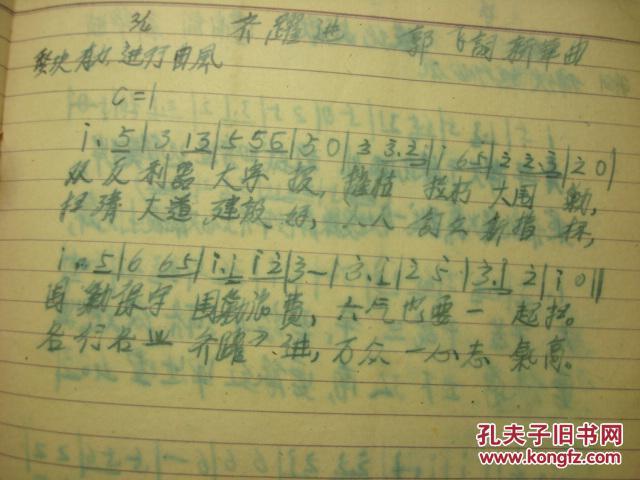 36 齐躍进 郭飞詞 新华曲
坚决有力 进行曲风
C=1
i. 5|3 13|5 56|5 0|3 3.2|i 65|2 2.3|2 0|
双反利器大字报, 猛打大围剿,
扫清大道建设好, 人人创立新指标,
i. 5|6 65|i.i i2|3-|3.i|2 5|3.i 2|i 0||
保守 浪費, 六气也要一起扫。
各行各业齐躍进, 万众一心志氣高。
孔夫子旧书网
www.kongfz.com